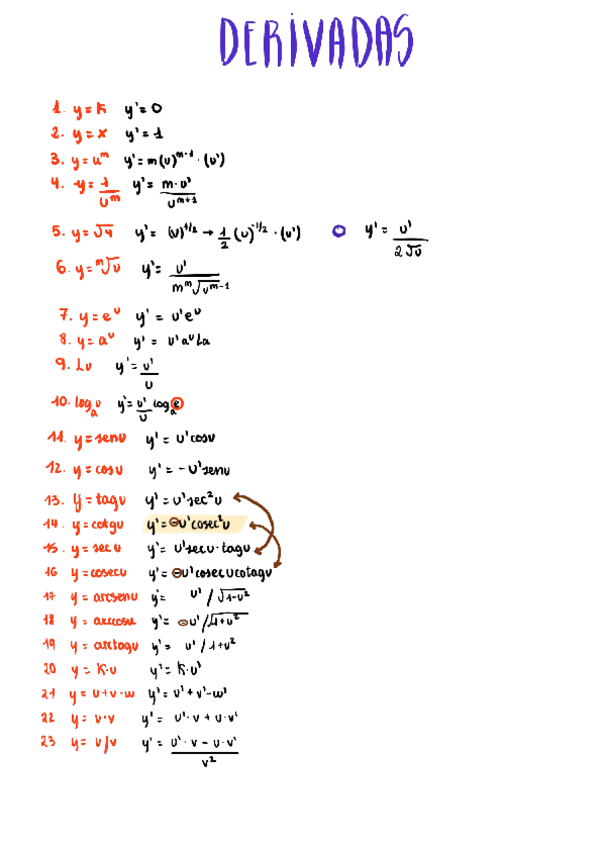 DERIVADAS
1. y = k y' = 0
2. y = x y' = 1
3. y = u^m y' = m(u)^m-1 · (u')
4. y = 1/u^m y' = m·u'/u^m+1
5. y = √u y' = (u)^1/2 → 1/2 (u)^-1/2 · (u') o y' = u'/2√u
6. y = ^m√u y' = u'/m ^m√u^m-1
7. y = e^u y' = u'e^u
8. y = a^u y' = u'a^u La
9. Lu y' = u'/u
10. log_a u y' = u'/u log_a e
11. y = senu y' = u'cosu
12. y = cosu y' = -u'senu
13. y = tagu y' = u'sec²u
14. y = cotgu y' = -u'cosec²u
15. y = secu y' = u'secu·tagu
16 y = cosecu y' = -u'cosecucotagu
17 y = arcsenu y' = u' / √1-u²
18 y = arccosu y' = -u' / √1+u²
19 y = arctagu y' = u' / 1+u²
20 y = k·u y' = k·u'
21 y = u+v-w y' = u'+v'-w'
22 y = u·v y' = u'·v + u·v'
23 y = u/v y' = u'·v - u·v'/v²